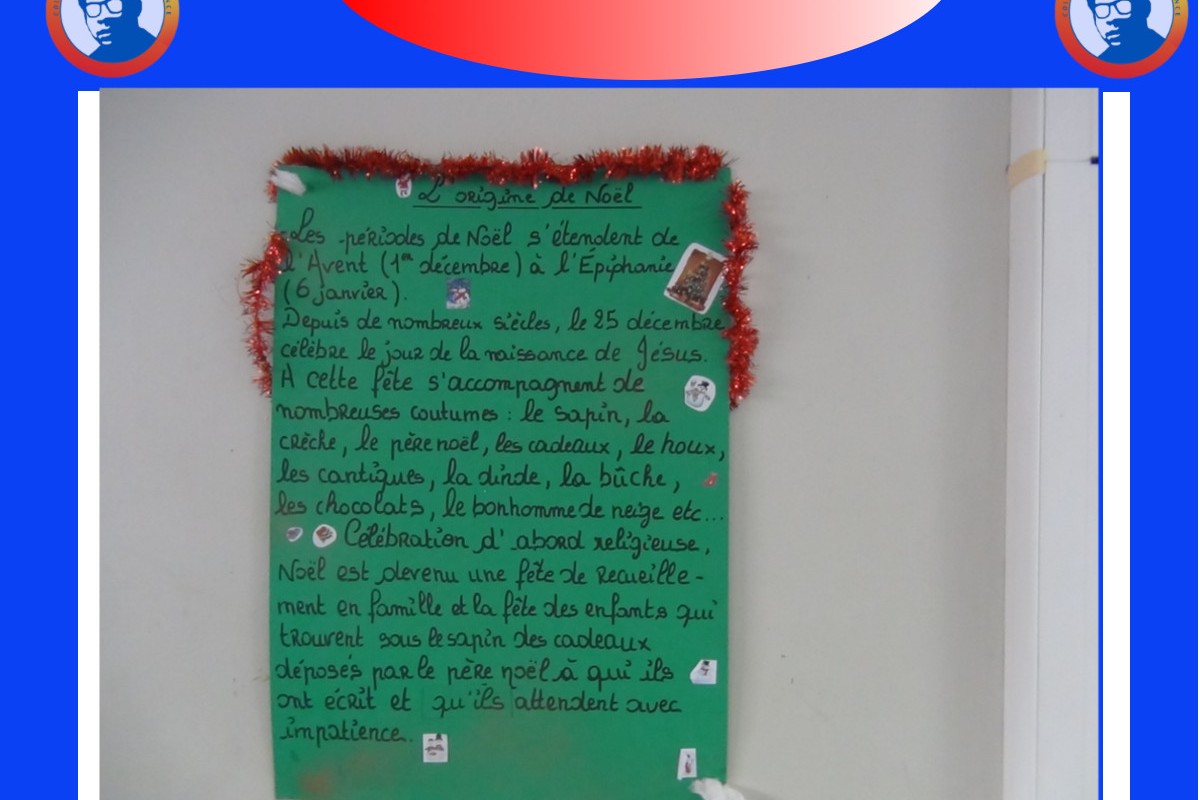 L'origine de Noël
Les périodes de Noël s'étendent de
l'Avent (1er décembre) à l'Épiphanie
(6 janvier).
Depuis de nombreux siècles, le 25 décembre
célèbre le jour de la naissance de Jésus.
A cette fête s'accompagnent de
nombreuses coutumes : le sapin, la
crèche, le père noël, les cadeaux, le houx,
les cantiques, la dinde, la bûche,
les chocolats, le bonhomme de neige etc...
Célébration d'abord religieuse,
Noël est devenu une fête de recueille-
ment en famille et la fête des enfants qui
trouvent sous le sapin des cadeaux
déposés par le père noël à qui ils
ont écrit et qu'ils attendent avec
impatience.